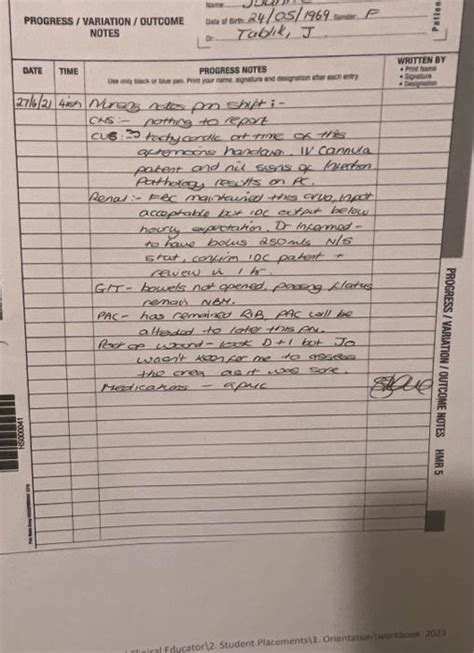 Name
PROGRESS / VARIATION / OUTCOME
NOTES
Date of Birth 24/05/1969 Gender F
Dr: Tablik, J
DATE TIME PROGRESS NOTES
Use only black or blue pen. Print your name, signature and designation after each entry
WRITTEN BY
• Print Name
• Signature
• Designation
27/6/21 notes pm shift :-
CNS:- nothing to report
tachycardic at time of this
afternoons handover. IV Cannula
patent and nil signs of infection
Pathology results on PC.
Renal :- FBC maintained this input
acceptable but IDC output below
hourly expectation. Dr Informed -
to have bolus 250mls N/S
stat, confirm IDC patent +
review in 1 hr.
GIT - bowels not opened, passing flatus
remain NBM.
PAC - has remained RIB, PAC will be
attended to later this pm.
Post op wound - look D+I but Jo
wasn't keen for me to assess
the area as it was sore.
Medications -
PROGRESS / VARIATION / OUTCOME NOTES HMR 5
HS000041
Clinical Educator\2. Student Placements\1. Orientation\workbook 2023